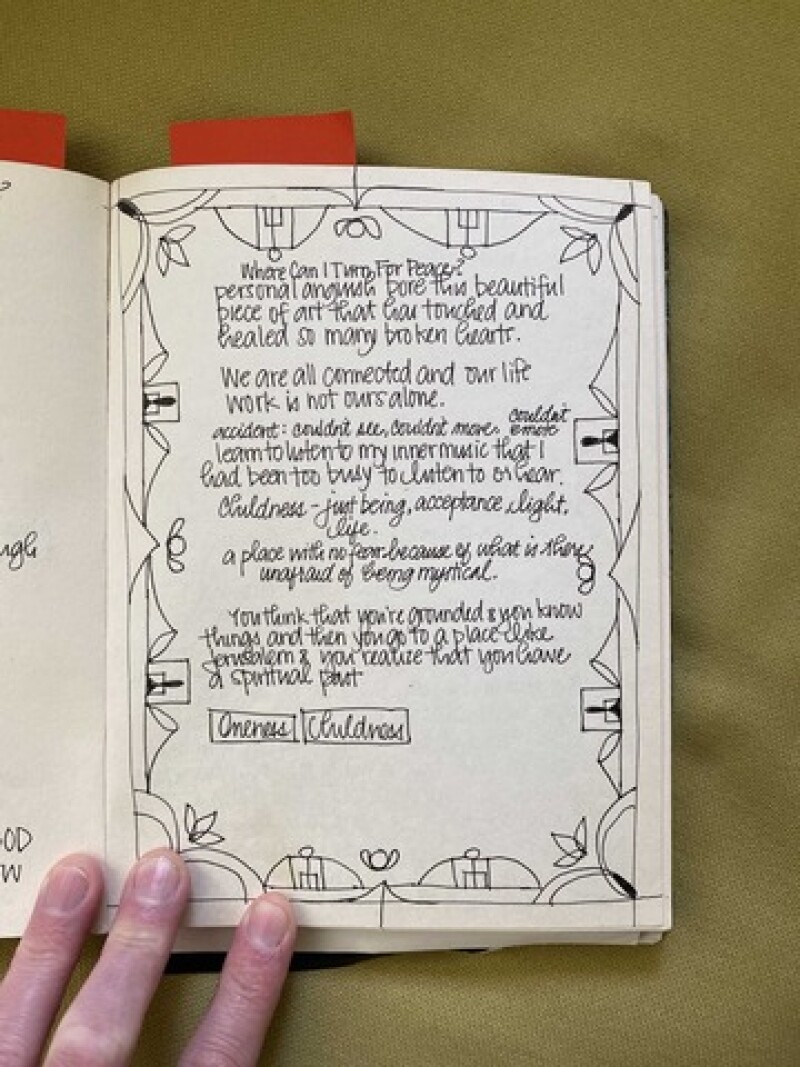 ugh
GOD
W
Where Can I Turn For Peace?
personal anguish bore this beautiful
piece of art that has touched and
healed so many broken hearts.
We are all connected and our life
work is not ours alone.
couldn't
accident: couldn't see, couldn't move, emote
learn to listen to my inner music that I
had been too busy to listen to or hear.
Childness - just being, acceptance, light,
life.
a place with no fear because of what is there
unafraid of being mystical.
You think that you're grounded & you know
things and then you go to a place like
Jerusalem & you realize that you have
a spiritual part
Oneness Childness